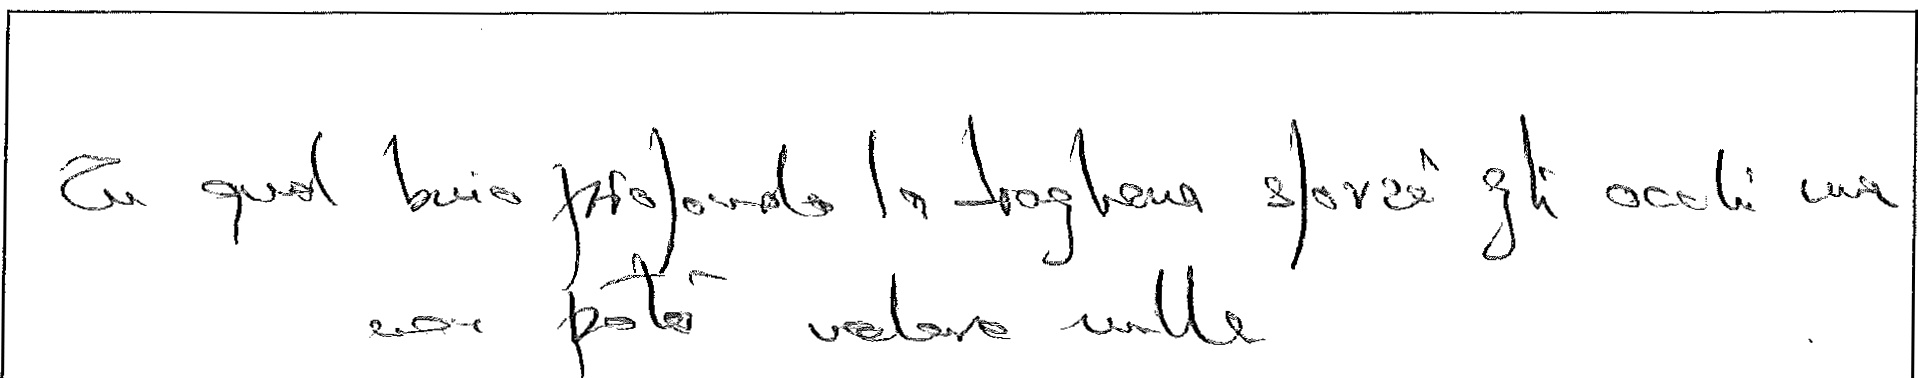 In quel buio profondo la bambina sforzò gli occhi ma
non poté vedere nulla